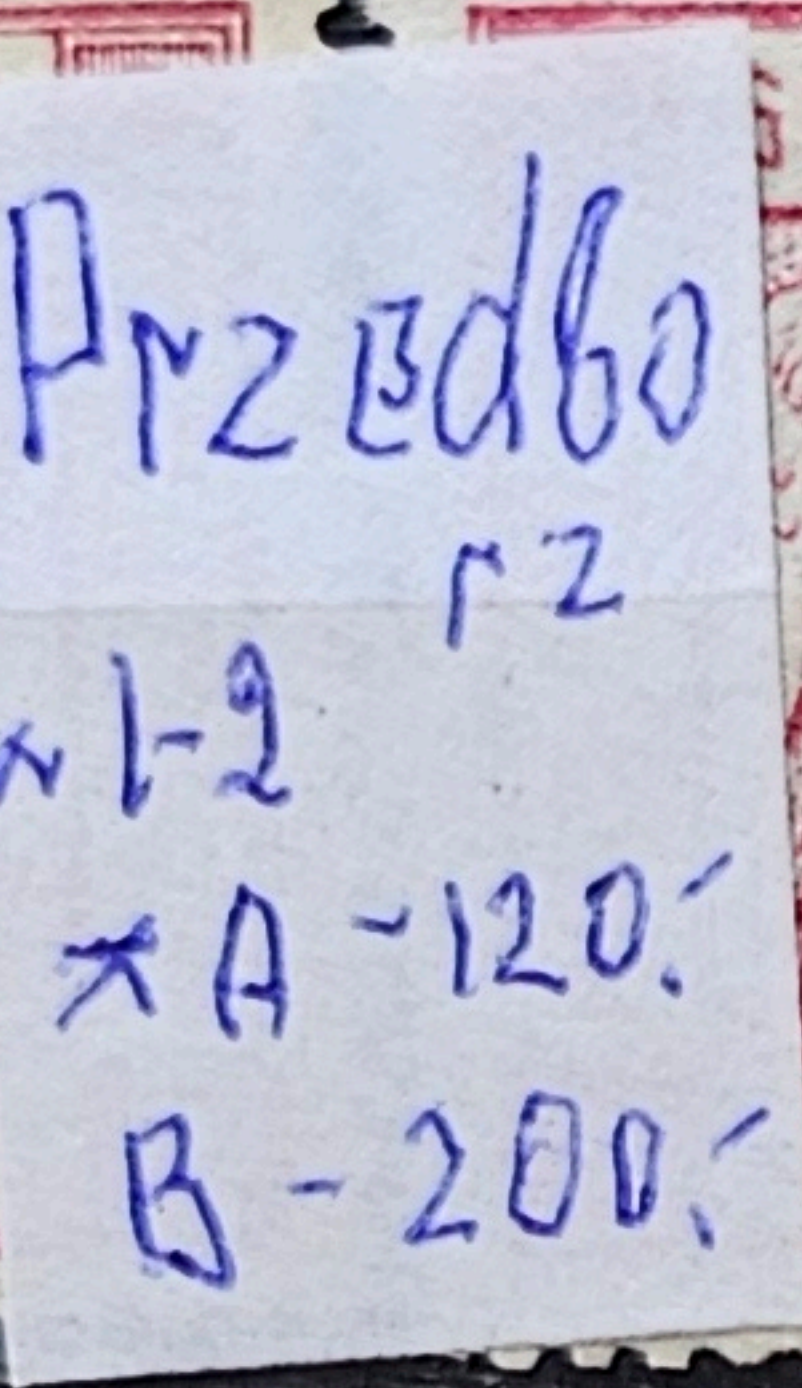 Przedbo
rz
N 1-2
* A - 120.-
B - 200.-